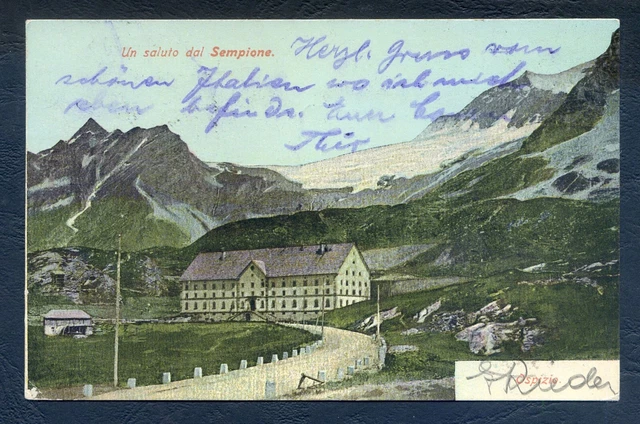 Un saluto dal Sempione.
Herzl. Gruss vom
schönen Italien wo ich mich
eben befinde.
Ospizio